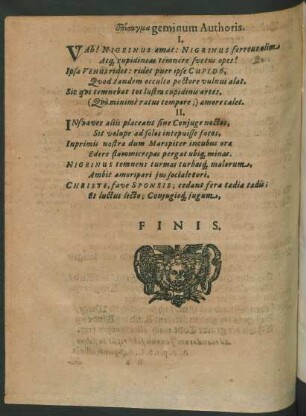 geminum Authoris.
I.
VAh! NIGRINUS amat: NIGRINUS ferreus olim
Atq, cupidineas temnere svetus opes!
Ipsa VENUS ridet: ridet puer ipse CUPIDO,
Quod tandem occulto pectore vulnus alat.
Sic qui temnebat tot lustra cupidinis artes,
(Quo minimè ratus tempore,) amore calet.
II.
INsvaves aliis placeant sine Conjuge noctes,
Sit volupe ad solos intepuisse focos,
Inprimis nostra dum Marspiter incubus ora
Edere pergat ubiq, minas.
NIGRINUS temnens turmas turbasq, malorum,
Ambit amoripari jus sociale tori.
CHRISTE, fave SPONSIS; cedant fera tadia tadis:
Et luctus lecto; Conjugiiq, jugum.
FINIS.